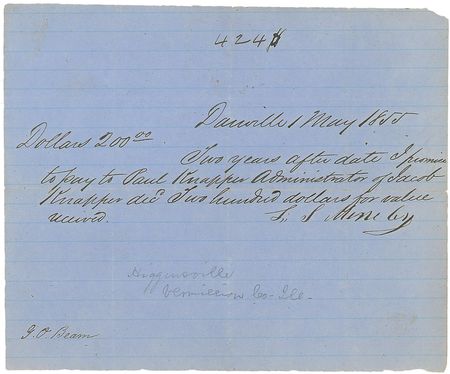 424
Danville 1 May 1855
Dollars 200 00
Two years after date I promise
to pay to Paul Knapper Administrator of Jacob
Knapper decd Two hundred dollars for value
received. L. S
Higginsville
Vermilion Co- Ill-
J. O. Beam